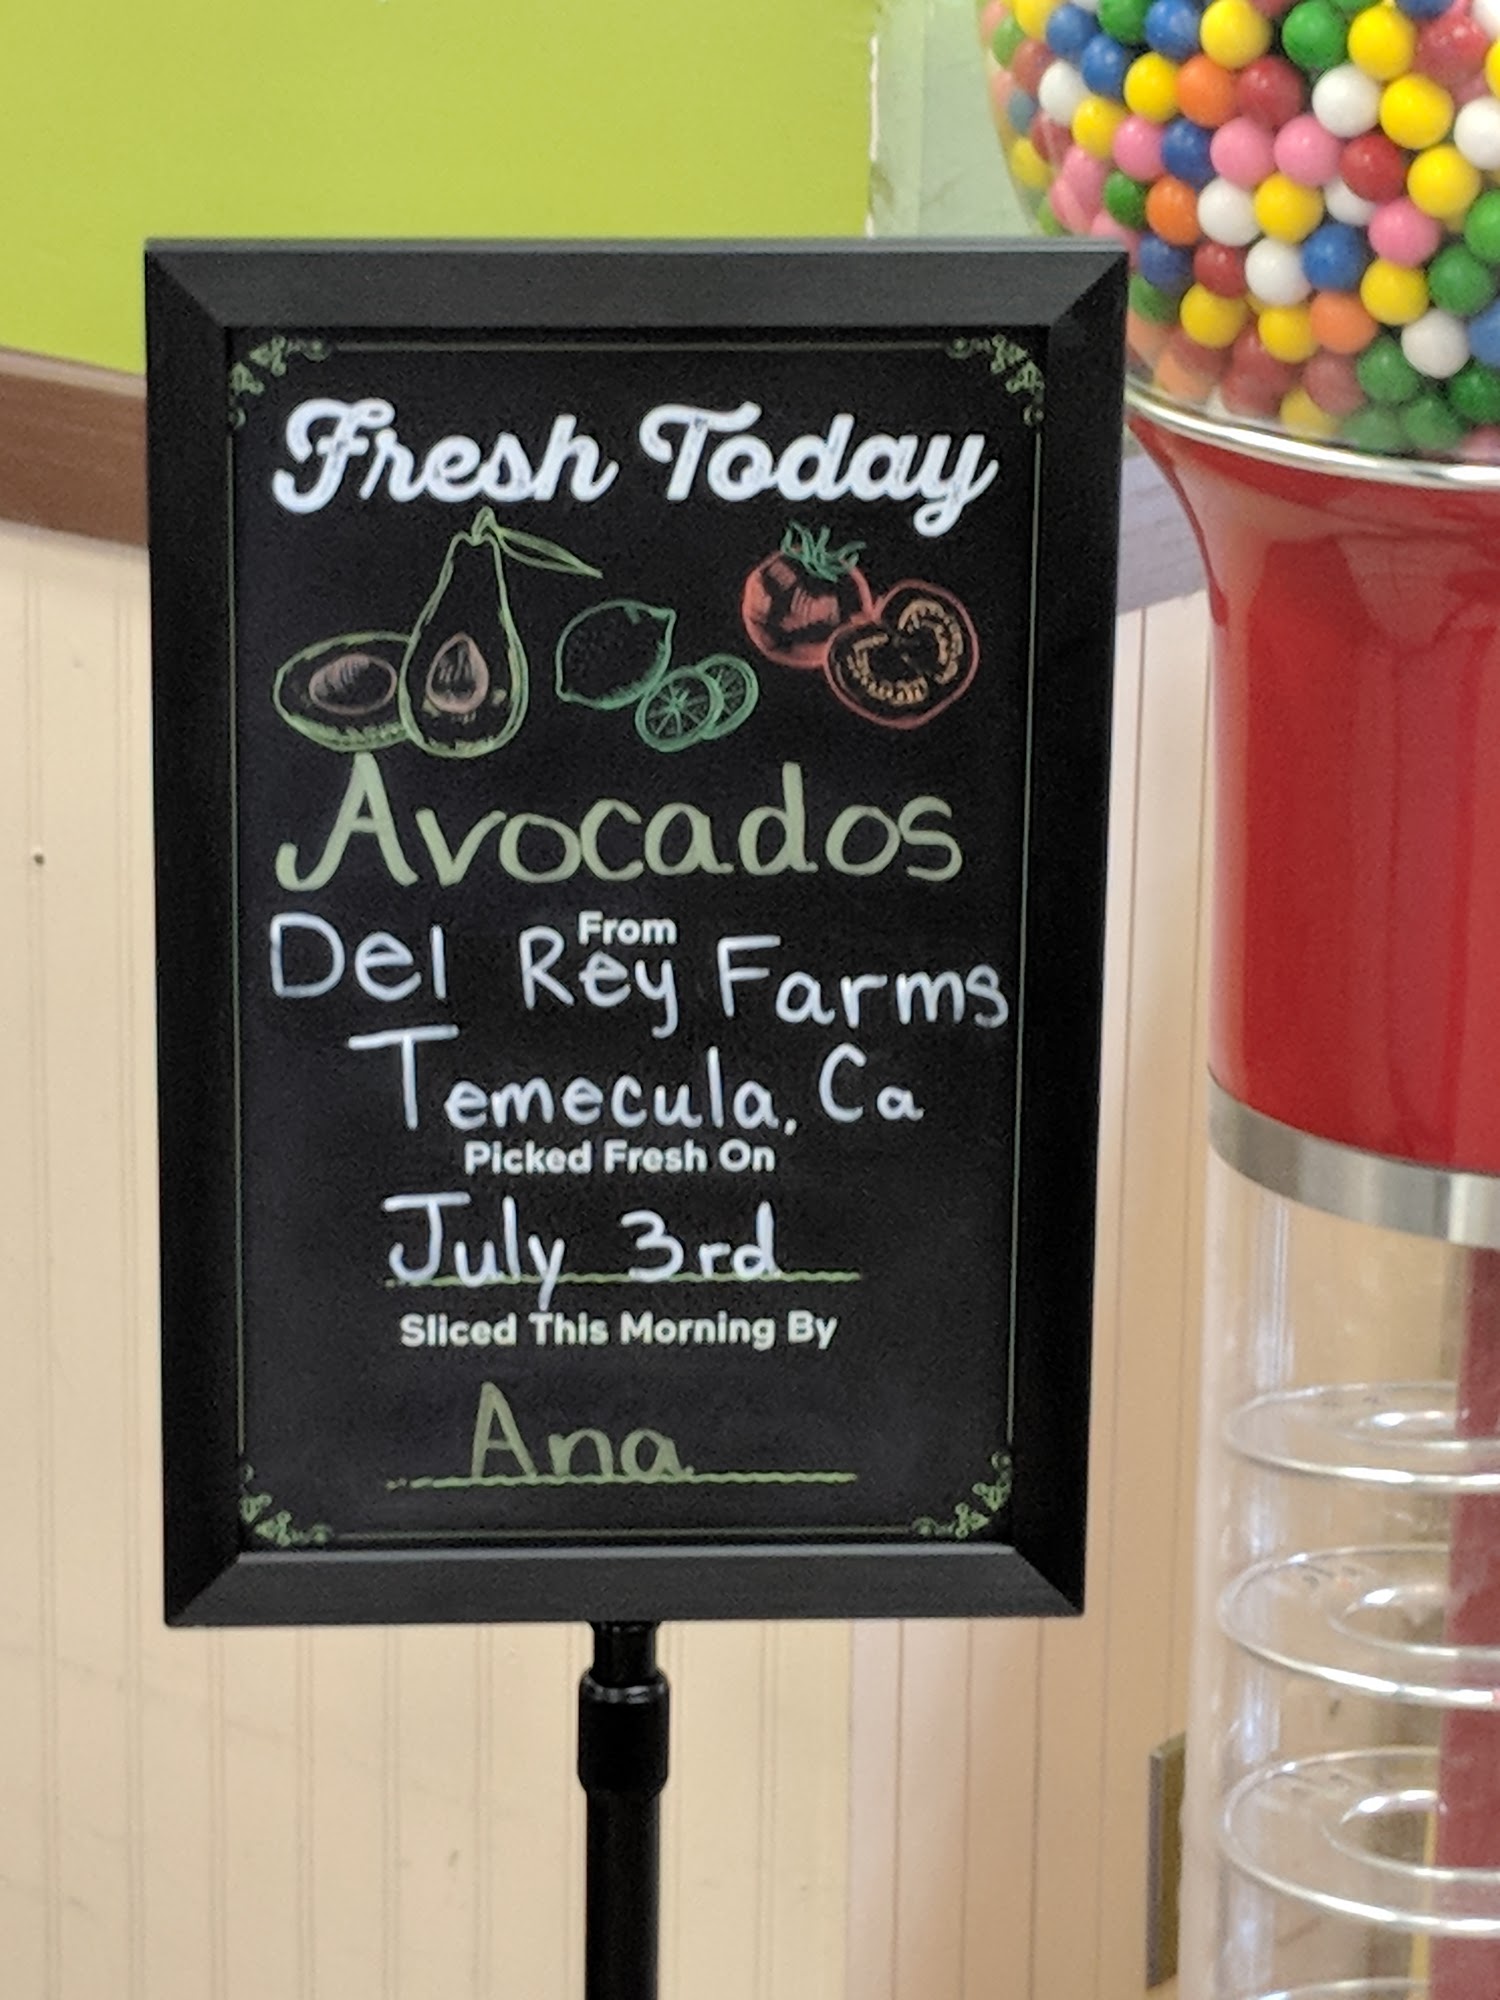 Fresh Today
Avocados
From
Del Rey Farms
Temecula, Ca
Picked Fresh On
July 3rd
Sliced This Morning By
Ana